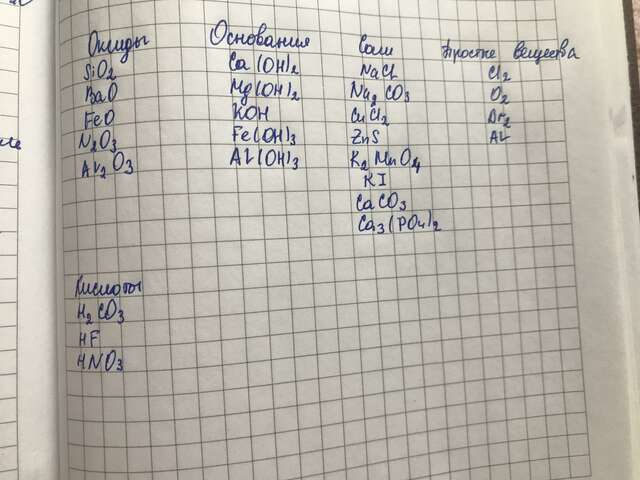 Оксиды Основания Соли Простые вещества
SiO2 Ca(OH)2 NaCl Cl2
BaO Mg(OH)2 Na2CO3 O2
FeO KOH CuCl2 Br2
N2O3 Fe(OH)3 ZnS Al
Al2O3 Al(OH)3 K2MnO4
KI
CaCO3
Ca3(PO4)2
Кислоты
H2CO3
HF
HNO3